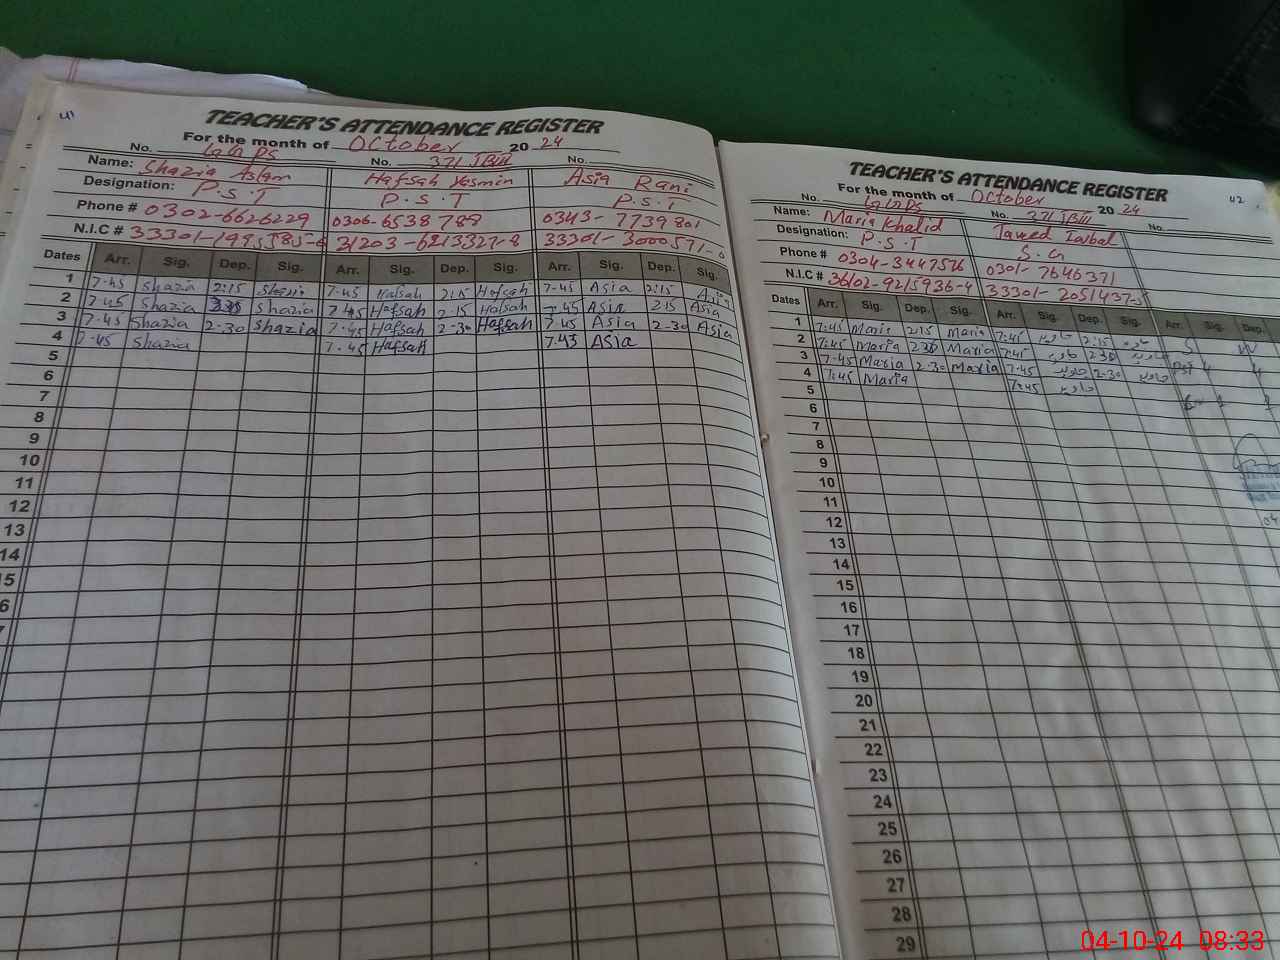 41
TEACHER'S ATTENDANCE REGISTER
For the month of October 2024
No. GGPS No. 371 JBIII No.
Name: Shazia Aslam Hafsah Yasmin Asia Rani
Designation: P.S.T P.S.T P.S.T
Phone # 0302-6626229 0306-6538788 0343-7739801
N.I.C # 33301- 31203-6213327-8 33301-3000571-0
Dates Arr. Sig. Dep. Sig. Arr. Sig. Dep. Sig. Arr. Sig. Dep. Sig.
1 7-45 Shazia 2:15 Shazia 7-45 Hafsah 2:15 Hafsah 7-45 Asia 2:15 Asia
2 7-45 Shazia Shazia 7-45 Hafsah 2-15 Hafsah 7-45 Asia 2 15 Asia
3 7-45 Shazia 2-30 Shazia 7-45 Hafsah 2-30 Hafsah 7-45 Asia 2-30 Asia
4 7-45 Shazia 7-45 Hafsah 7.43 Asia
5
6
7
8
9
10
11
12
13
14
15
6
7
42
TEACHER'S ATTENDANCE REGISTER
For the month of October 2024
No. GGPS No. 371 JBIII No.
Name: Maria Khalid Javed Iqbal
Designation: P.S.T S.G
Phone # 0304-3447576 0301-7646371
N.I.C # 36102-9215936-4 33301-2051437-5
Dates Arr. Sig. Dep. Sig. Arr. Sig. Dep. Sig. Arr. Sig. Dep.
1 7:45 Maria 2:15 Maria 7:45 جاوید 2:15 جاوید
2 7:45 Maria 2:30 Maria 7:45 جاوید 2:30 جاوید
3 7-45 Maria 2-30 Maria 7-45 جاوید 2-30 جاوید
4 7:45 Maria 7:45 جاوید
5
6
7
8
9
10
11
12
13
14
15
16
17
18
19
20
21
22
23
24
25
26
27
28
29
04-10-24 08:33